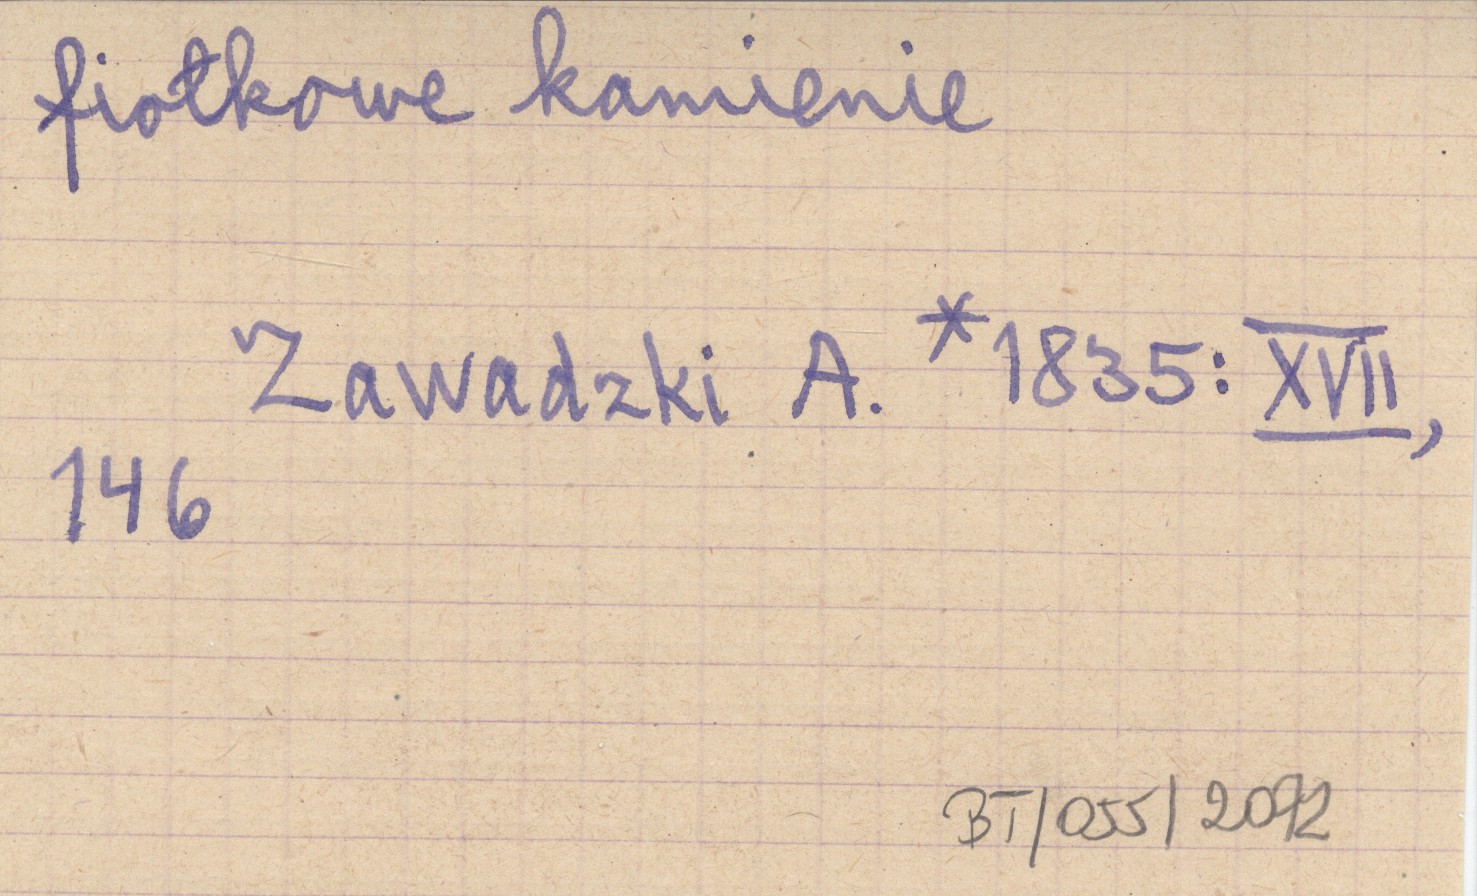 fiołkowe kamienie
Zawadzki A. *1835: XVII,
146
BT/055/2092